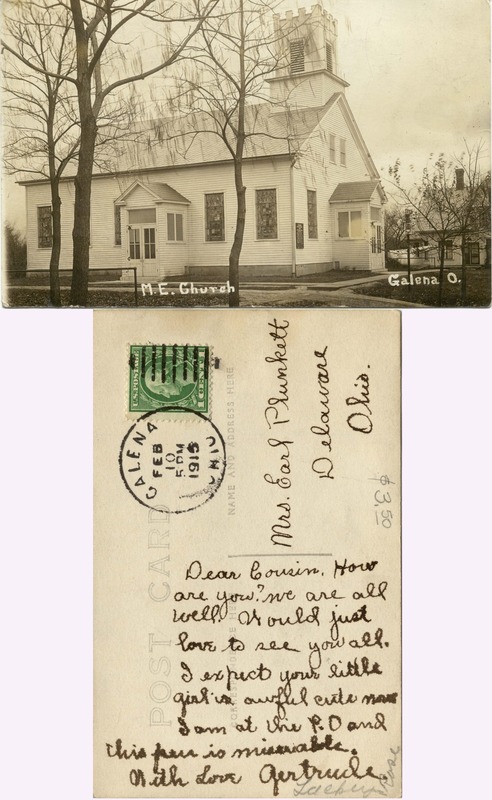 M.E. Church
Galena O.
U.S. POSTAGE
1 CENT 1
GALENA
FEB
10
5 PM
1915
OHIO
NAME AND ADDRESS HERE
Mrs. Earl Plunkett
Delaware
Ohio.
$3.50
POST CARD
CORRESPONDENCE HERE
Dear Cousin, How
are you? we are all
well. Would just
love to see you all.
I expect your little
girl is awful cute now
I am at the P.O and
this pen is miserable.
With Love Gertrude.
Rose